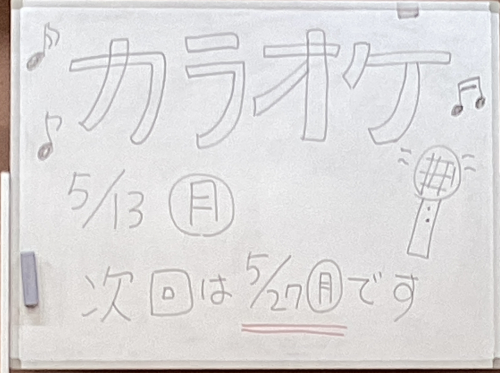 カラオケ
5/13 ㊊
次回は 5/27㊊です